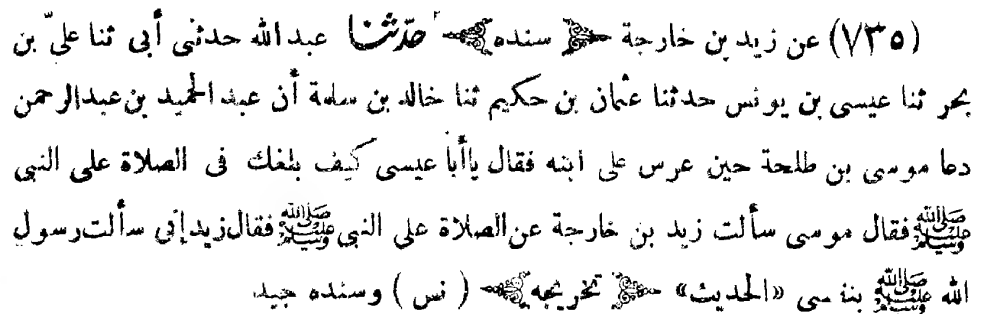 (٧٣٥) عن زيد بن خارجة سنده حدثنا عبد الله حدثنى أبى ثنا علىّ بن
بحر ثنا عيسى بن يونس حدثنا عثمان بن حكيم ثنا خالد بن سلمة أن عبد الحميد بن عبد الرحمن
دعا موسى بن طلحة حين عرس على ابنه فقال يا أبا عيسى كيف بلغك فى الصلاة على النبى
ﷺ فقال موسى سألت زيد بن خارجة عن الصلاة على النبى ﷺ فقال زيد إنى سألت رسول
الله ﷺ بنفسى «الحديث» تخريجه (نس) وسنده جيد